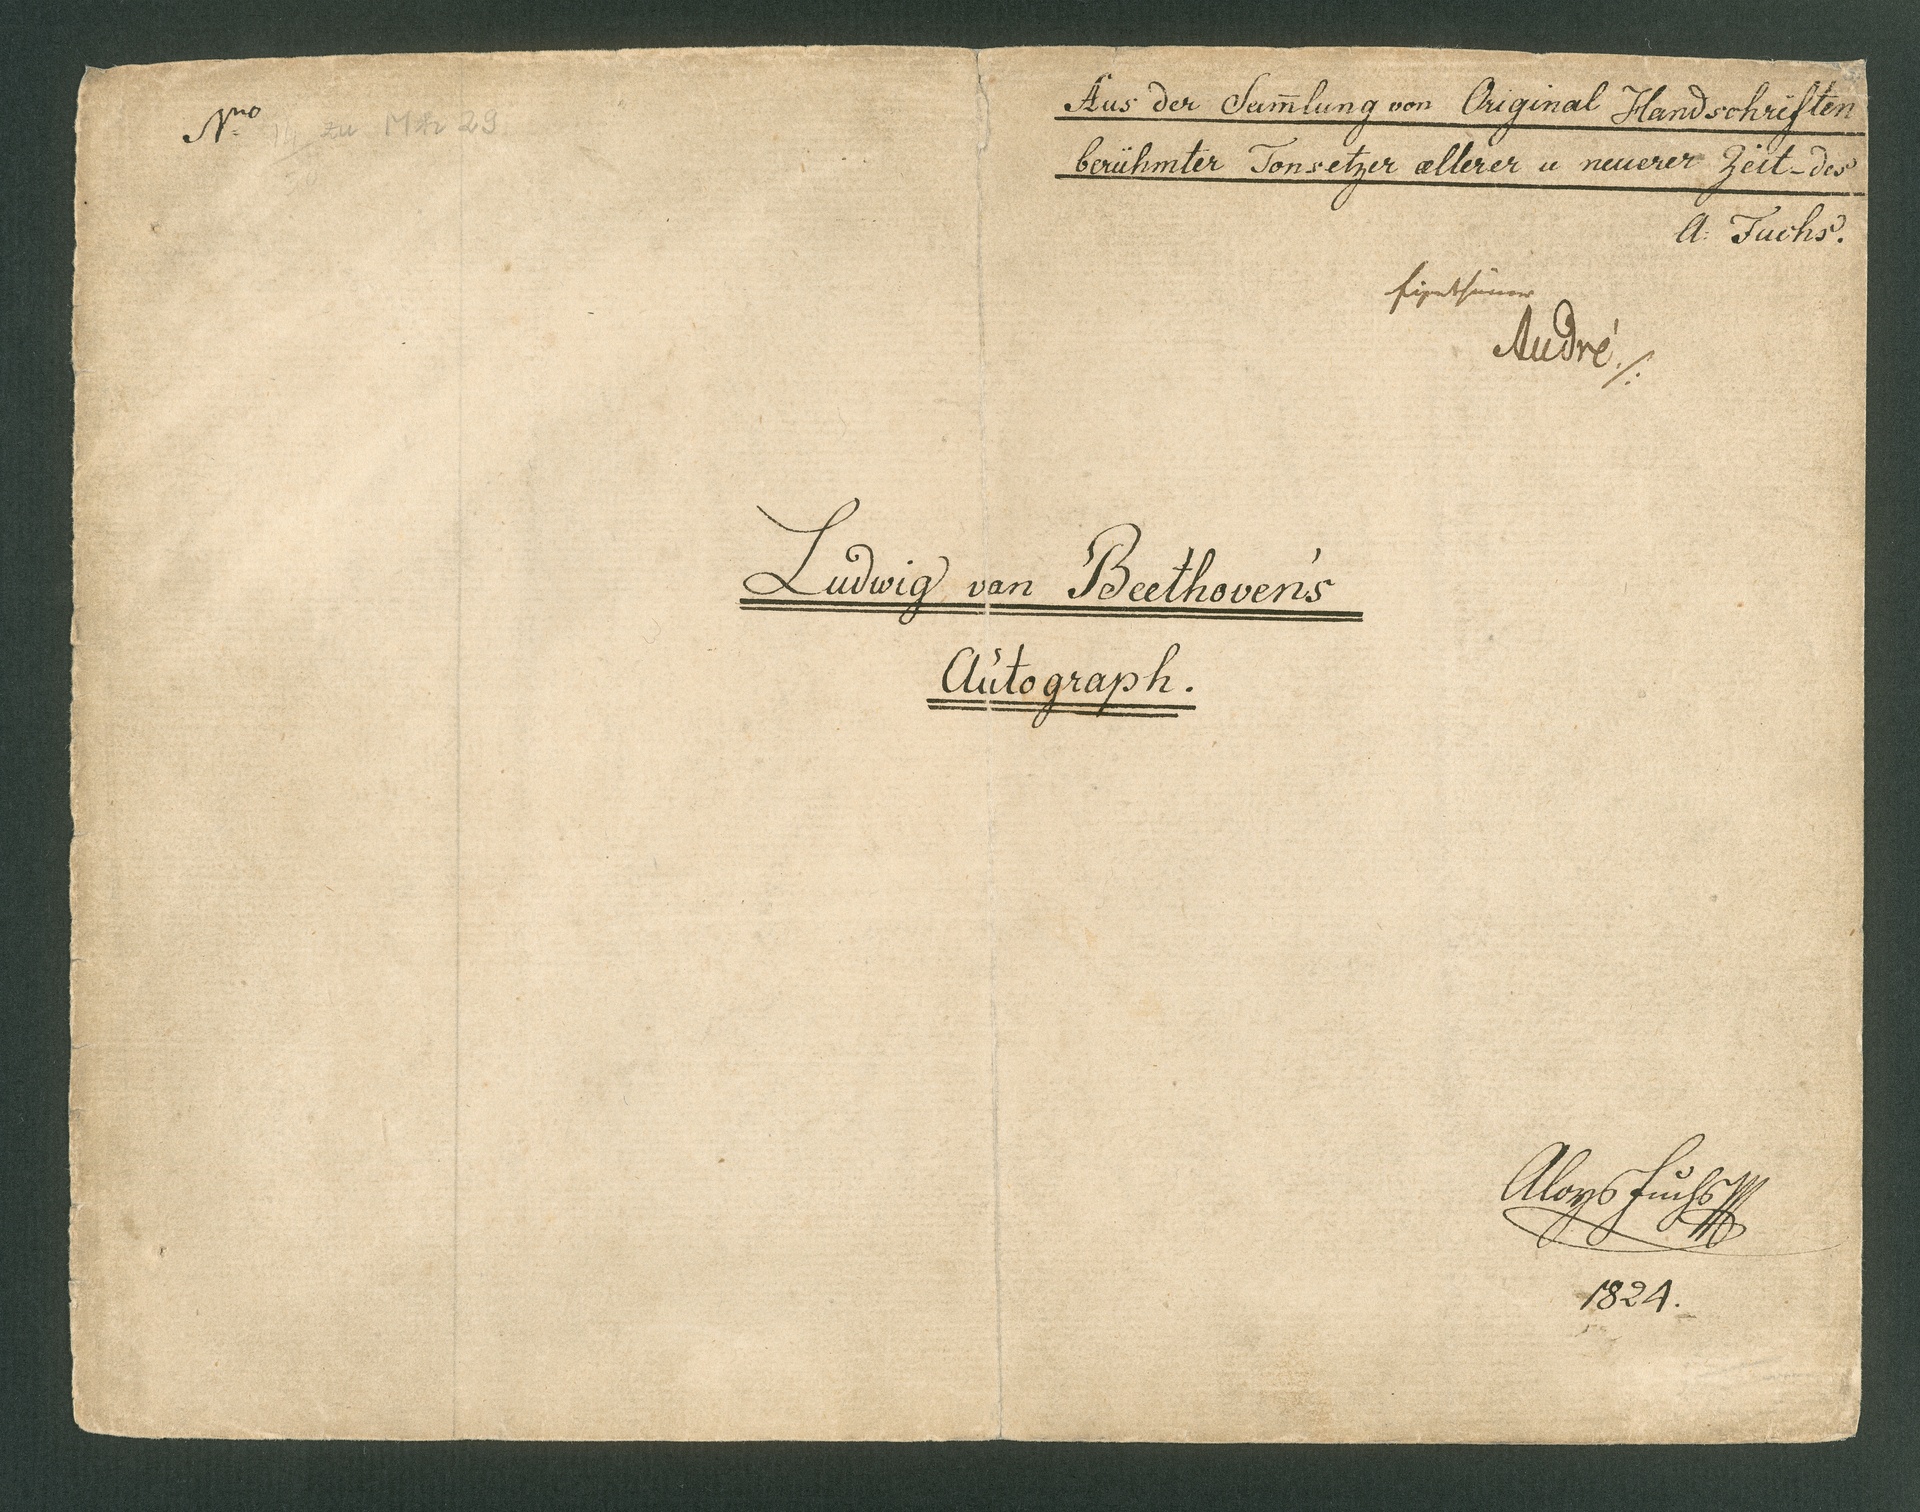 Nro 14 zu Mh 29
Aus der Sam̅lung von Original Handschriften
berühmter Tonsetzer ællerer u neuerer Zeit - des
A. Fuchs.
Eigenthümer
André
Ludwig van Beethoven's
Autograph.
Aloys Fuchs
1824.